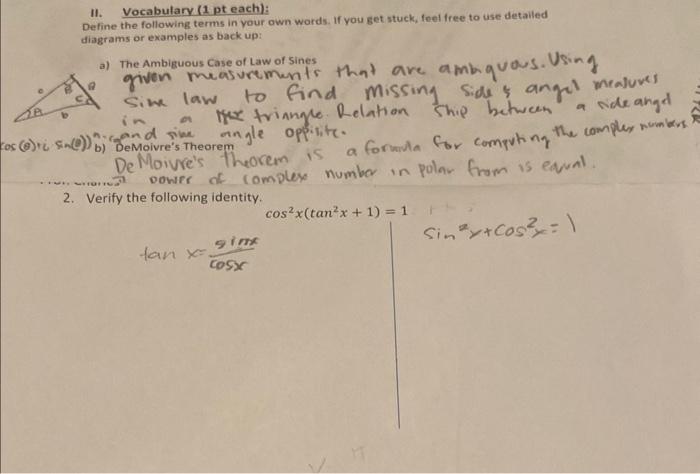 II. Vocabulary (1 pt each):
Define the following terms in your own words. If you get stuck, feel free to use detailed
diagrams or examples as back up:
a) The Ambiguous Case of Law of Sines
given measurements that are ambiquous. Using
Sine law to find missing side & angel measures
in a triangle. Relation ship between a side angel
and sine angle oppisite.
b) DeMoivre's Theorem
De Moivre's theorem is a formula for computing the complex numbers
power of complex number in polar from is equal.
2. Verify the following identity.
cos²x(tan²x + 1) = 1
tan x = sinx/cosx
sin²x+cos²x=1